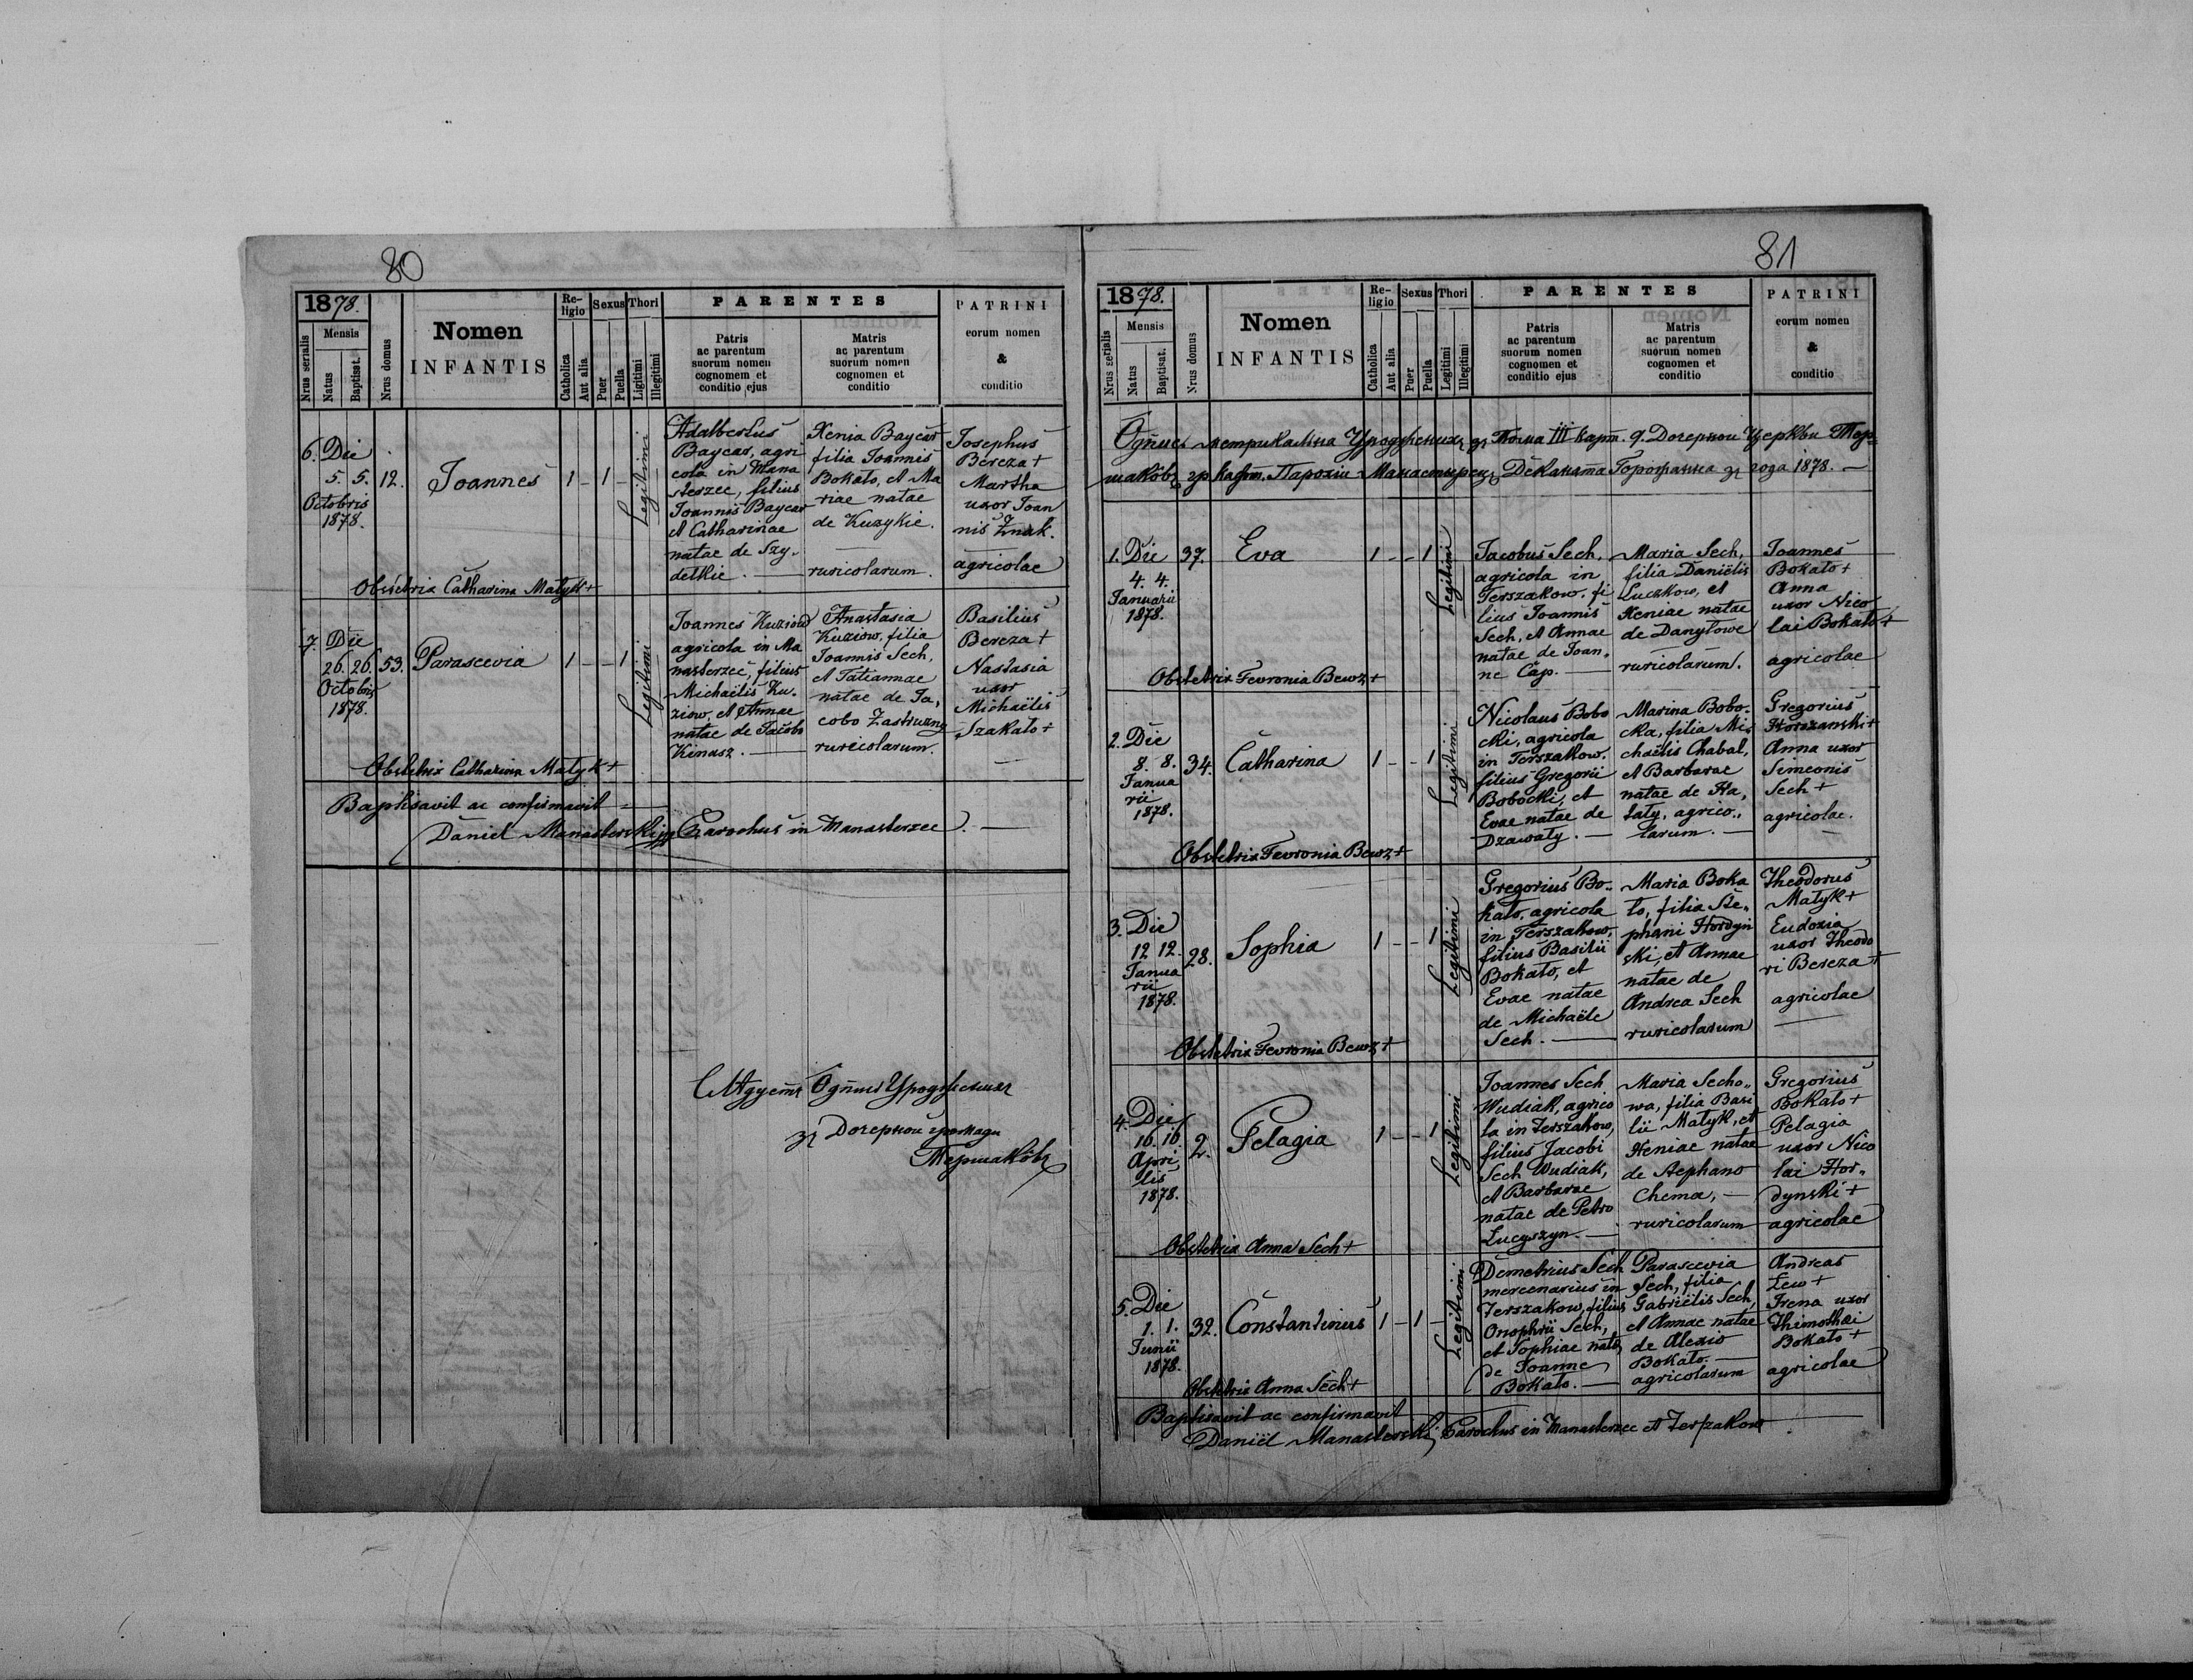 80
1878.
Nrus serialis
Mensis
Natus
Baptisat.
Nrus domus
Nomen
INFANTIS
Re-
ligio
Catholica
Aut alia
Sexus
Puer
Puella
Thori
Ligitimi
Illegitimi
PARENTES
Patris
ac parentum
suorum nomen
cognomem et
conditio ejus
Matris
ac parentum
suorum nomen
cognomen et
conditio
PATRINI
eorum nomen
&
conditio
6. Die
5. 5. 12.
Octobris
1878.
Joannes
1 - 1 -
Legitimi
Adalbertus
Baycar, agri
cola in Mana
sterzec, filius
Joannis Baycar
et Catharinae
natae de Szy-
detkie. —
Xenia Baycar
filia Joannis
Bokało, et Ma
riae natae
de Kuzykie.
ruricolarum.
Josephus
Bereza +
Martha
uxor Joan
nis Żmak.
agricolae
Obstetrix Catharina Matyk +
7. Die
26. 26. 53.
Octobris
1878.
Parascevia
1 - - 1
Legitimi
Joannes Kuziow
agricola in Ma
nasterzec, filius
Michaëlis Ku-
ziow, et Annae
natae de Jacobo
Kinasz. —
Anastasia
Kuziow, filia
Joannis Sech,
et Tatiannae
natae de Ja,
cobo Zastrużny
ruricolarum.
Basilius
Bereza +
Nastasia
uxor
Michaëlis
Szakało +
Obstetrix Catharina Matyk +
Baptisavit ac confirmavit —
Daniel Manasterski Parochus in Manasterzec. —
зъ Дочернои громады
Тершаковъ
81
1878.
Nrus serialis
Mensis
Natus
Baptisat.
Nrus domus
Nomen
INFANTIS
Re-
ligio
Catholica
Aut alia
Sexus
Puer
Puella
Thori
Legitimi
Illegitimi
PARENTES
Patris
ac parentum
suorum nomen
cognomen et
conditio ejus
Matris
ac parentum
suorum nomen
cognomen et
conditio
PATRINI
eorum nomen
&
conditio
Одпись метрикальна Урожденихъ зъ Тома III карт. 9. Дочернои Церкви Тер-
шаковъ гр. каѳт. Парохіи Манастирецъ Деканата Горожанна зъ года 1878. —
1. Die 37.
4. 4.
Januarii
1878.
Eva
1 - - 1
Legitimi
Jacobus Sech,
agricola in
Terszakow, fi
lius Joannis
Sech, et Annae
natae de Joan-
ne Cap. —
Maria Sech,
filia Daniëlis
Luczkow, et
Xeniae natae
de Danyłowe
ruricolarum.
Joannes
Bokało +
Anna
uxor Nico
lai Bokało +
agricolae
Obstetrix Fevronia Bewz +
2. Die
8. 8. 34.
Janua
rii
1878.
Catharina
1 - - 1
Legitimi
Nicolaus Bobo
cki, agricola
in Terszakow,
filius Gregorii
Bobocki, et
Evae natae de
Dzawały. —
Marina Bobo-
cka, filia Mi-
chaëlis Chabal,
et Barbarae
natae de Ha,
łaty, agrico-
larum. —
Gregorius
Horszanski +
Anna uxor
Simeonis
Sech +
agricolae.
Obstetrix Fevronia Bewz +
3. Die
12 12. 28.
Janua
rii
1878.
Sophia
1 - - 1
Legitimi
Gregorius Bo-
kało, agricola
in Terszakow,
filius Basilii
Bokało, et
Evae natae
de Michaële
Sech. —
Maria Boka
ło, filia Ste-
phani Hordyn
ski, et Annae
natae de
Andrea Sech
ruricolarum
Theodorus
Matyk +
Eudoxia
uxor Theodo
ri Bereza +
agricolae
Obstetrix Fevronia Bewz +
4. Die
16. 16. 2.
Apri
lis
1878.
Pelagia
1 - - 1
Legitimi
Joannes Sech
Wudiak, agrico
la in Terszakow,
filius Jacobi
Sech Wudiak,
et Barbarae
natae de Petro
Łucyszyn. —
Maria Secho-
wa, filia Basi
lii Matyk, et
Xeniae natae
de Stephano
Choma, —
ruricolarum
Gregorius
Bokało +
Pelagia
uxor Nico
lai Hor-
dynski +
agricolae
Obstetrix Anna Sech +
5. Die
1. 1. 32.
Junii
1878.
Constantinus
1 - 1 -
Legitimi
Demetrius Sech
mercenarius in
Terszakow, filius
Onophrii Sech,
et Sophiae natae
de Joanne
Bokało. —
Parascevia
Sech, filia
Gabriëlis Sech,
et Annae natae
de Alexio
Bokało. —
agricolarum
Andreas
Lew +
Irena uxor
Thimothei
Bokało +
agricolae
Obstetrix Anna Sech +
Baptisavit ac confirmavit
Daniël Manasterski, Parochus in Manasterzec et Terszakow